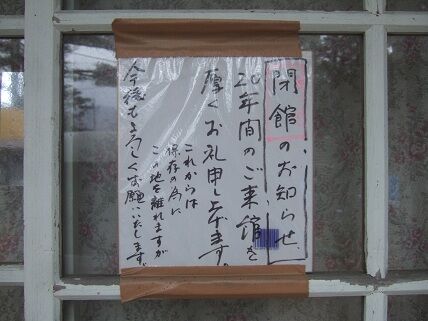 閉館のお知らせ
20年間のご来館を
厚くお礼申し上げます。
これからは
保存の為に
この地を離れますが
今後もよろしくお願いいたします。